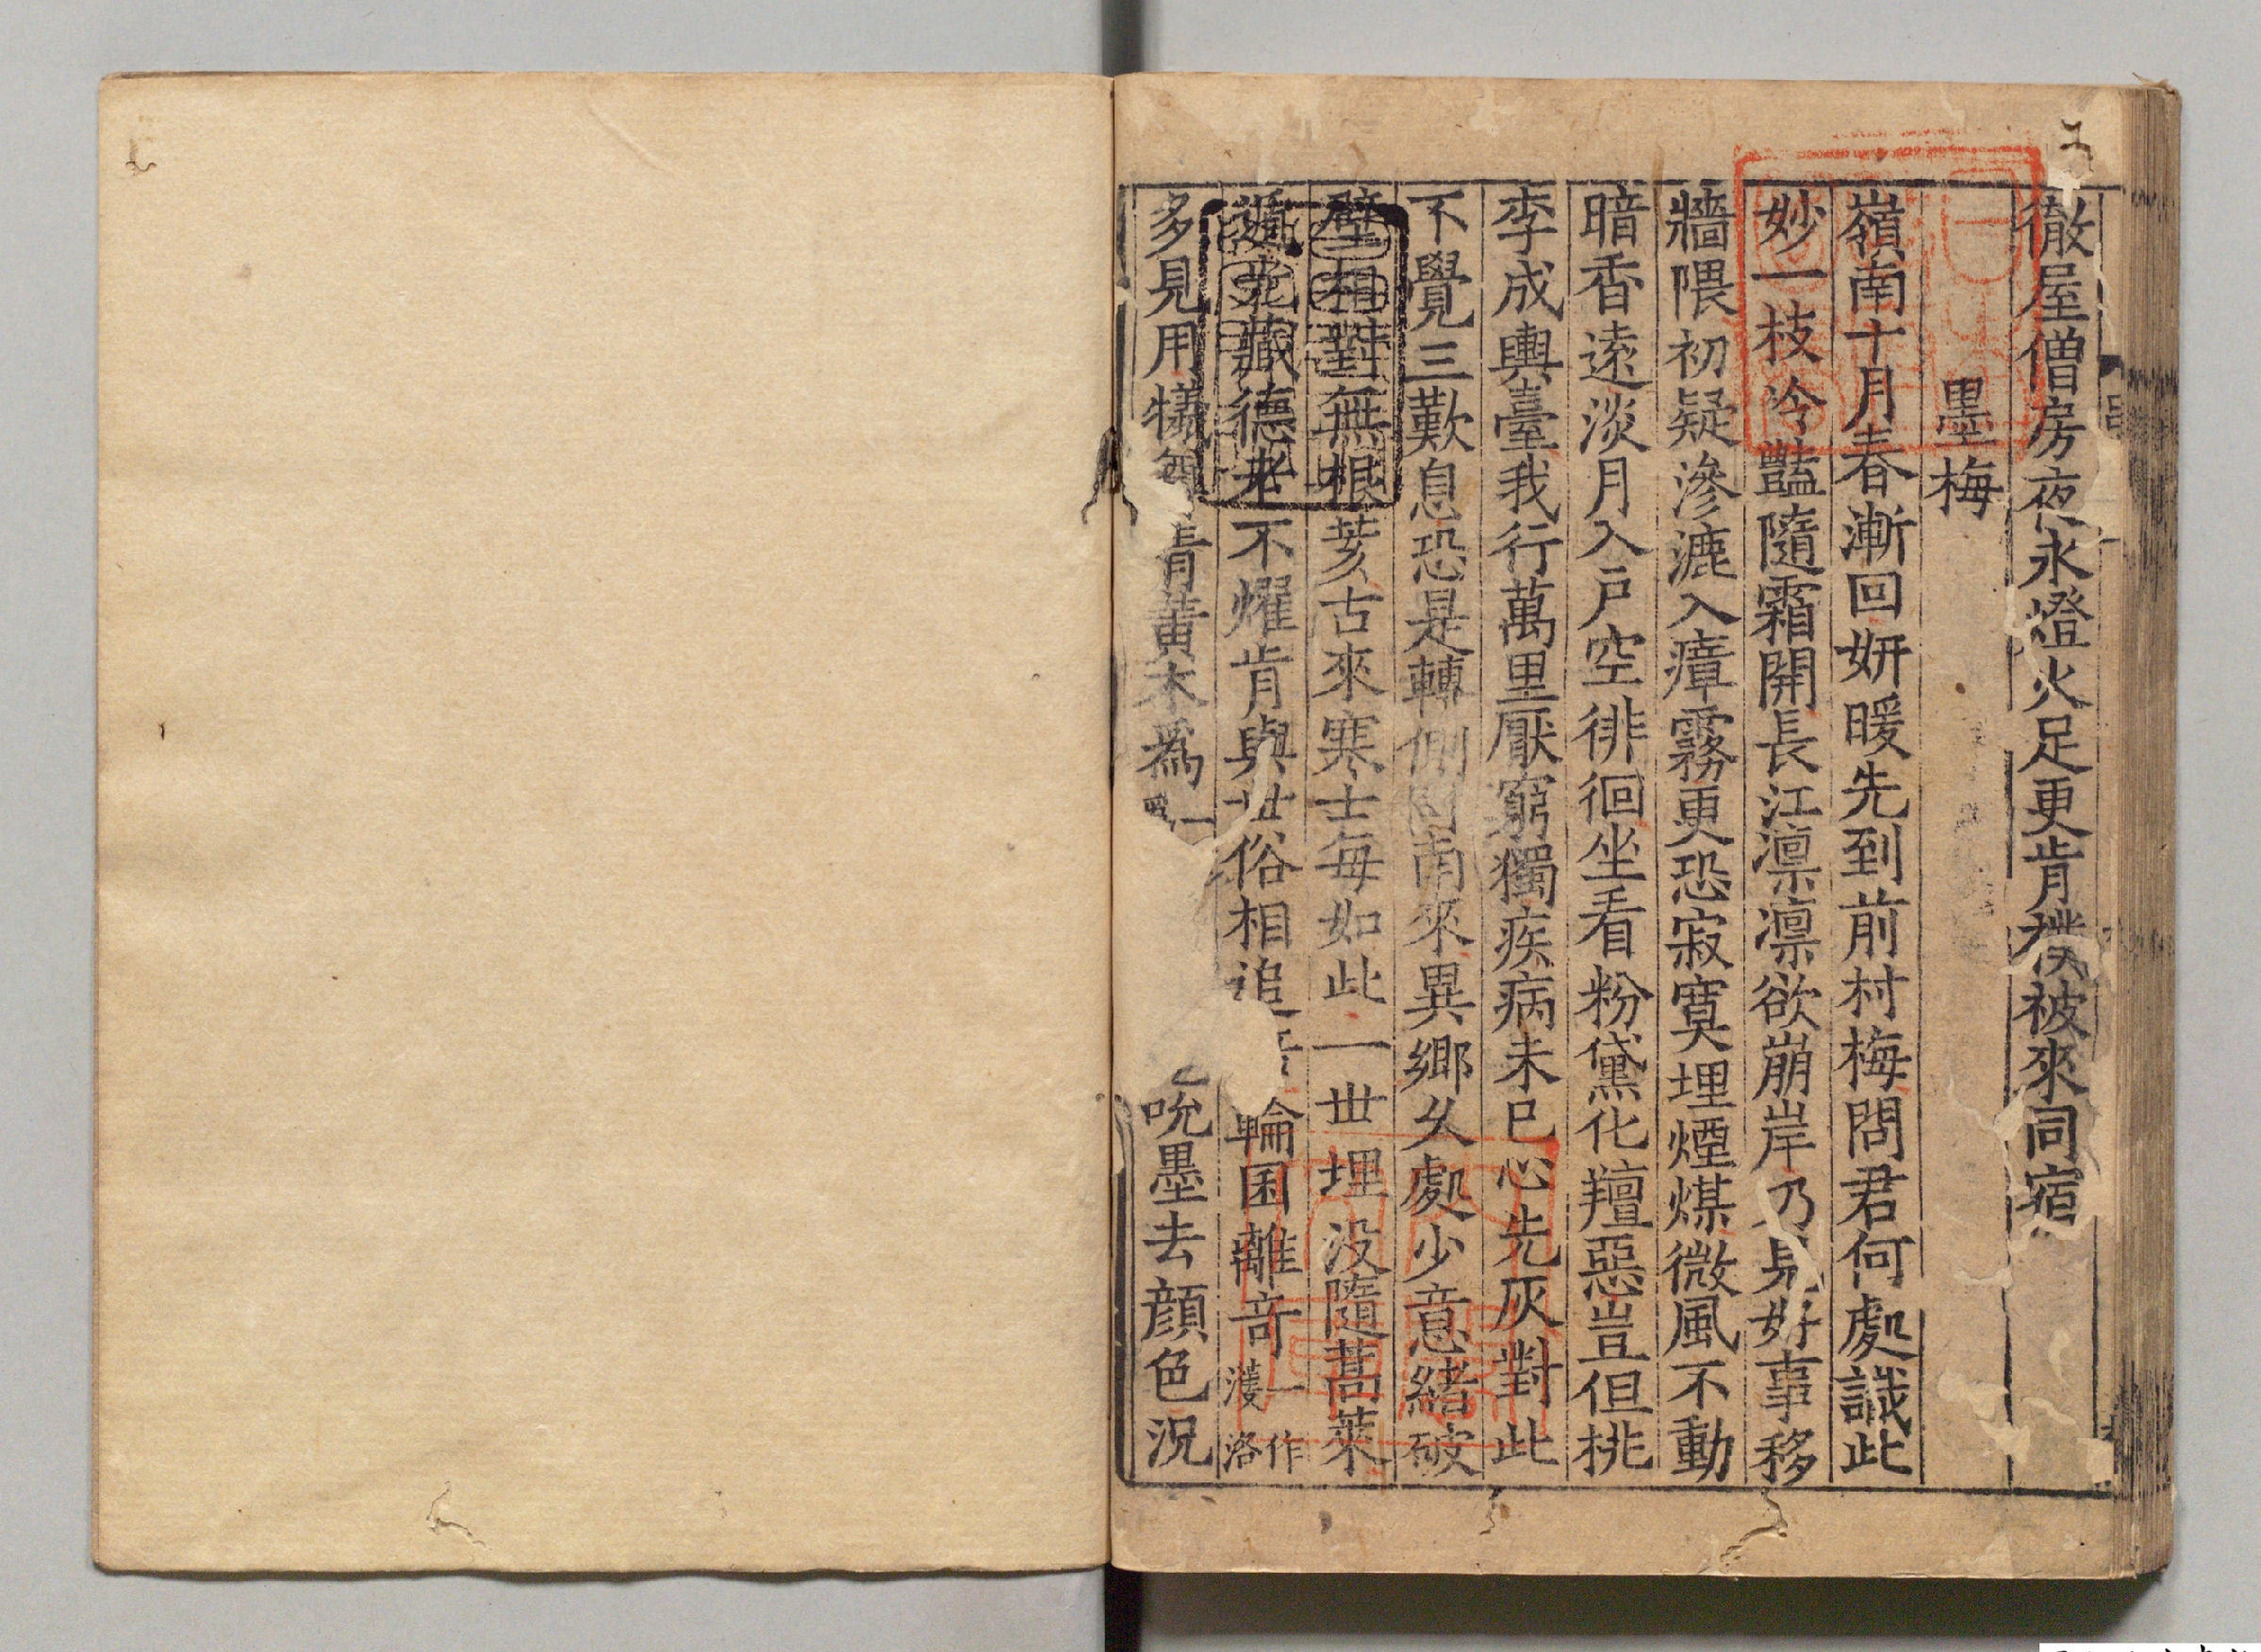 徹屋僧房夜永燈火足更肯襆被來同宿
墨梅
嶺南十月春漸回妍暖先到前村梅問君何處識此
妙一枝冷豔隨霜開長江凛凛欲崩岸乃是好事移
牆隈初疑滲漉入瘴霧更恐寂寞埋煙煤微風不動
暗香遠淡月入戶空徘徊坐看粉黛化羶惡豈但挑
李成輿臺我行萬里厭窮獨疾病未已心先灰對此
不覺三歎息恐是轉側同南來異鄉久處少意緒破
壁相對無根荄古來寒士每如此一世埋没隨蒿萊
遁光藏德老不耀肯與世俗相追輪囷離奇一作濩洛
多見用犧青黃木爲一吮墨去顔色況